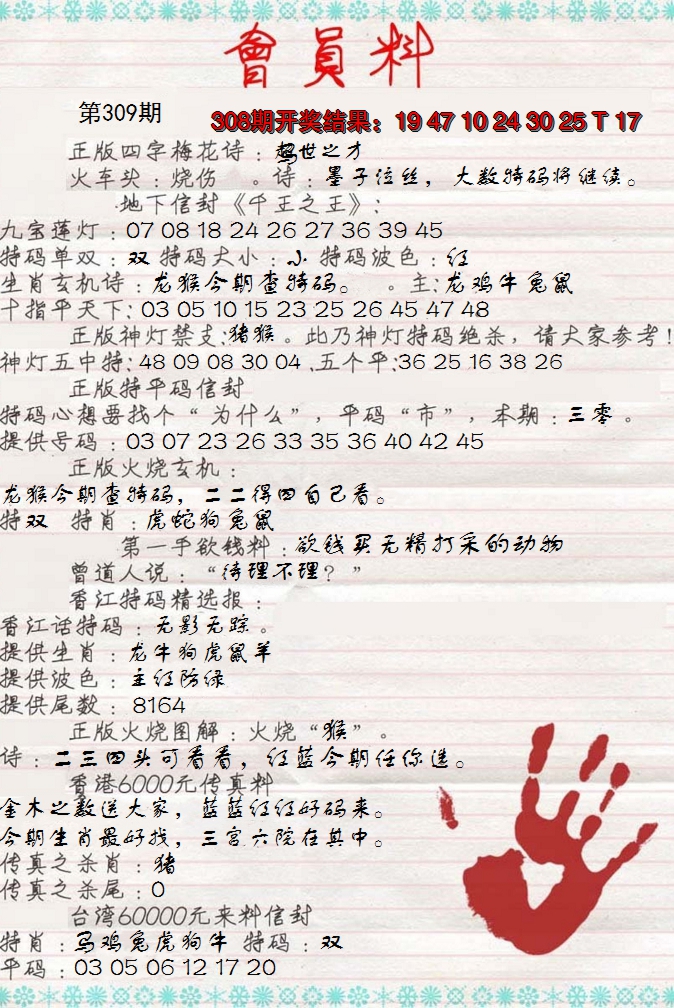 會員料
第309期
308期开奖结果：19 47 10 24 30 25 T 17
正版四字梅花诗：鸪世之才
火车头：烧伤 。诗：墨子泣丝，大数特码将继续。
地下信封《千王之王》：
九宝莲灯：07 08 18 24 26 27 36 39 45
特码单双：双 特码大小：小 特码波色：红
生肖玄机诗：龙猴今期查特码。 。主：龙鸡牛兔鼠
十指平天下：03 05 10 15 23 25 26 45 47 48
正版神灯禁支：猪猴。此乃神灯特码绝杀，请大家参考！
神灯五中特：48 09 08 30 04 .五个平：36 25 16 38 26
正版特平码信封
特码心想要找个“为什么”，平码“市”，本期：三零。
提供号码：03 07 23 26 33 35 36 40 42 45
正版火烧玄机：
龙猴今期查特码，二二得四自己看。
特双 特肖：虎蛇狗兔鼠
第一手欲钱料：欲钱买无精打采的动物
曾道人说：“待理不理？”
香江特码精选报：
香江话特码：无影无踪。
提供生肖：龙牛狗虎鼠羊
提供波色：主红防绿
提供尾数：8164
正版火烧图解：火烧“猴”。
诗：二三四头可看看，红蓝今期任你选。
香港6000元传真料
金木之数送大家，蓝蓝红红好码来。
今期生肖最好找，三宫六院在其中。
传真之杀肖：猪
传真之杀尾：0
台湾60000元来料信封
特肖：马鸡兔虎狗牛 特码：双
平码：03 05 06 12 17 20